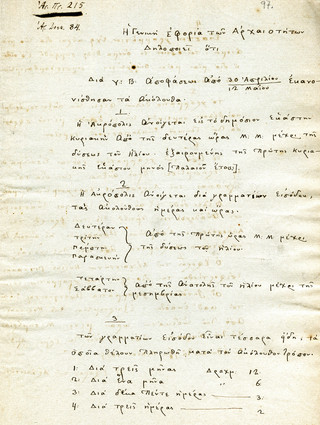 Αρ. Πρ. 215
97.
Η Γενική Εφορία των Αρχαιοτήτων
Δηλοποιεί ότι
Διά γ: Β. αποφάσεως από 20 Απριλίου εκανο-
12 Μαΐου
νίσθησαν τα ακόλουθα.
1
Η Ακρόπολις ανοίγεται εις το δημόσιον εκάστην
Κυριακήν από της δευτέρας ώρας Μ.Μ. μέχρι της
δύσεως του Ηλίου. εξαιρουμένης της πρώτης Κυρια-
κής εκάστου μηνός [Παλαιού έτους].
2
Η Ακρόπολις ανοίγεται διά γραμματίων εισόδου,
τας ακολούθους ημέρας και ώρας.
Δευτέραν
τρίτην
πέμπτην
παρασκευήν
από της πρώτης ώρας Μ.Μ. μέχρι
της δύσεως του Ηλίου
τετάρτην
Σάββατον
από της ανατολής του Ηλίου μέχρι της
μεσημβρίας.
3
των γραμματίων εισόδου είναι τέσσαρα ήδη, τα
οποία θέλουν πληρωθή κατά τον ακόλουθον τρόπον.
1: Διά τρεις μήνας Δραχμ. 12
2: Διά ένα μήνα " 6
3: Διά δέκα πέντε ημέρας — 3
4: Διά τρεις ημέρας — 2